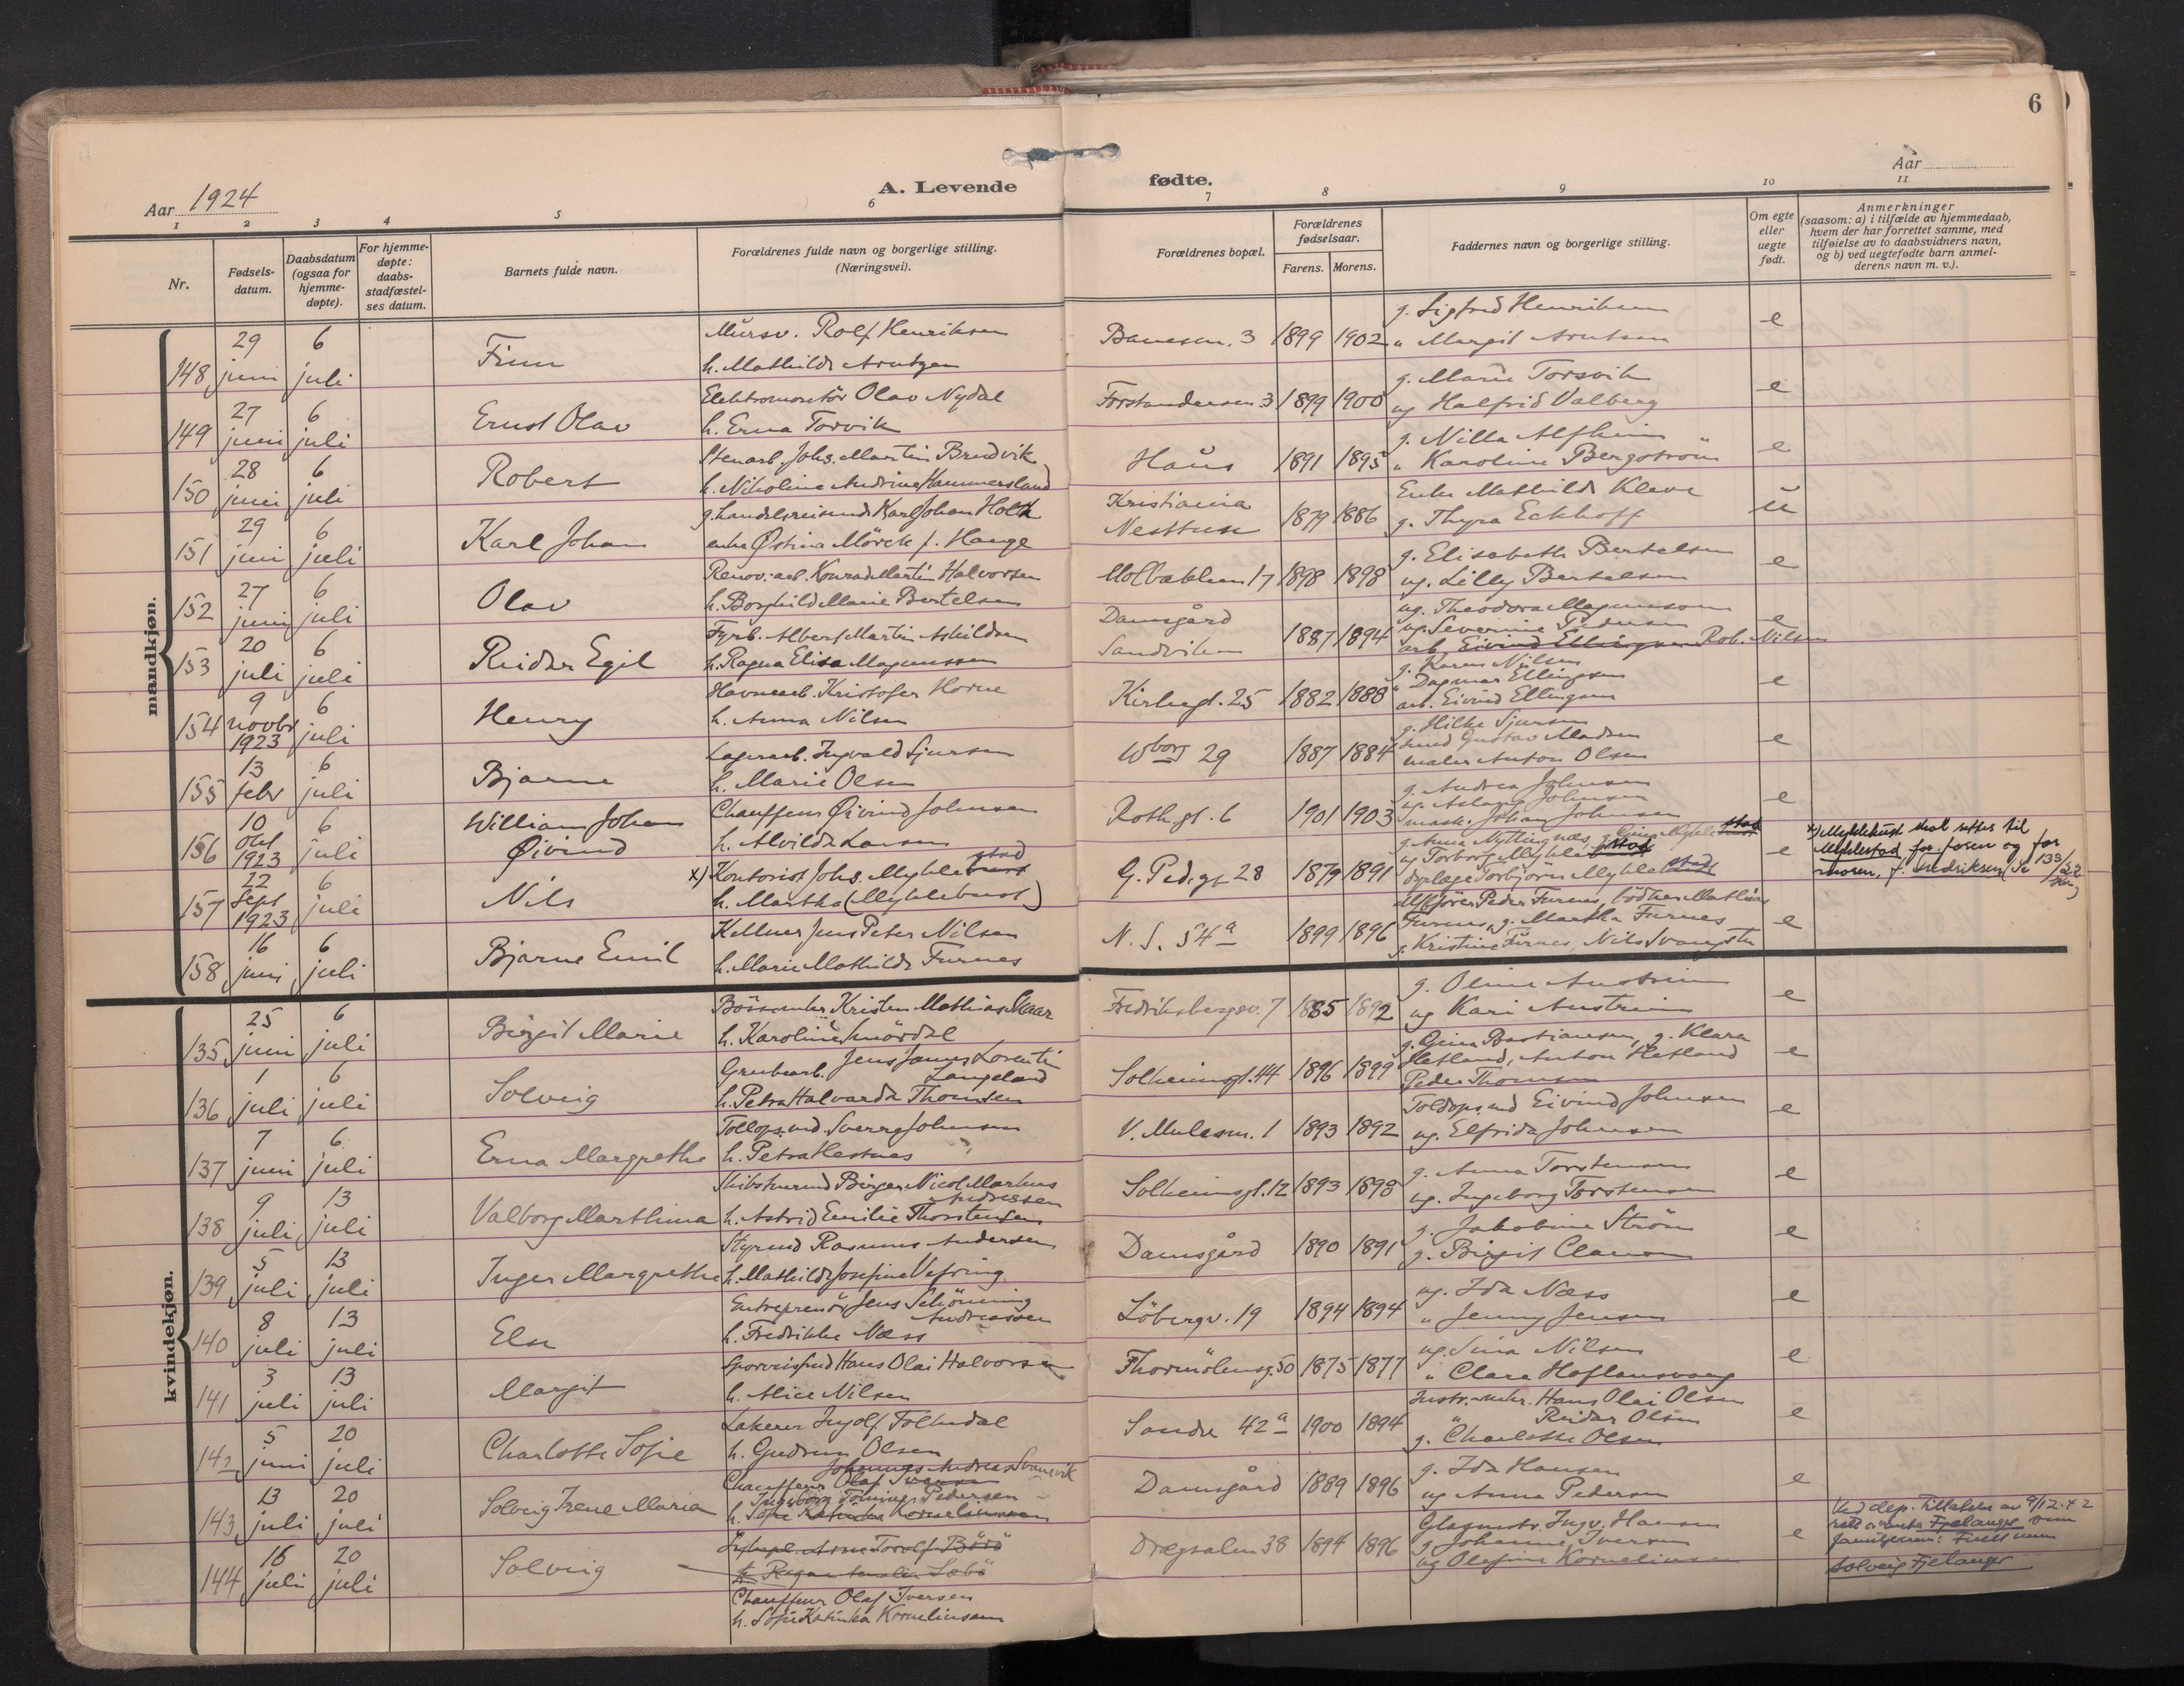 6
Aar 1924
A. Levende
fødte.
Aar
1 2 3 4 5 6 7 8 9 10 11
Nr.
Fødsels-
datum.
Daabsdatum
(ogsaa for
hjemme-
døpte).
For hjemme-
døpte:
daabs-
stadfæstel-
ses datum.
Barnets fulde navn.
Forældrenes fulde navn og borgerlige stilling.
(Næringsvei).
Forældrenes bopæl.
Forældrenes
fødselsaar.
Farens. Morens.
Faddernes navn og borgerlige stilling.
Om egte
eller
uegte
født.
Anmerkninger
(saasom: a) i tilfælde av hjemmedaab,
hvem der har forrettet samme, med
tilføielse av to daabsvidners navn,
og b) ved uegtefødte barn anmel-
derens navn m. v.).
mandkjøn.
148 29 juni 6 juli
Finn
Mursv. Rolf Henriksen
h. Mathilde Arntzen
Banesm. 3 1899 1902
g. Sigfred Henriksen
" Margit Arntsen
e
149 27 juni 6 juli
Ernst Olav
Elektromontör Olav Nydal
h. Erna Torvik
Forstandersm. 3 1899 1900
g. Marie Torsvik
ug Halfrid Valberg
e
150 28 juni 6 juli
Robert
Stenarb Johs. Martin Bredvik
h. Nikoline Andrine Hammersland
Haus 1891 1895
g. Nilla Alfheim
" Karoline Bergström
e
151 29 juni 6 juli
Karl Johan
g. handelsreisende Karl Johan Holth
enke Østina Mörch f. Hauge
Kristiania
Nesttun
1879 1886
Enke Mathilde Kleve
g. Thyra Eckhoff
u
152 27 juni 6 juli
Olav
Renov. arb. Konrad Martin Halvorsen
h. Borghild Marie Bertelsen
Molbakken 17 1898 1898
g. Elisabeth Bertelsen
ug. Lilly Bertelsen
e
153 20 juli 6 juli
Reidar Egil
Fyrb. Albert Martin Askildsen
h. Ragna Elisa Magnussen
Damsgård
Sandviken
1887 1894
ug. Theodora Magnusson
ug. Severine Pedersen
arb. Eivind Ellingsen Rob. Nilsen
e
154 9 novbr 1923 6 juli
Henry
Havnearb. Kristofer Horne
h. Anna Nilsen
Kirkegt. 25 1882 1888
g. Karen Nilsen
" Dagmar Ellingsen
arb. Eivind Ellingsen
e
155 13 febr 6 juli
Bjarne
Lagerarb. Ingvald Sjursen
h. Marie Olsen
Wborg 29 1887 1884
g. Hilke Sjursen
smed Gustav Madsen
maler Anton Olsen
e
156 10 okt 1923 6 juli
William Johan
Øivind
Chauffeur Øivind Johnsen
h. Alvilde Larsen
Rothgt. 6 1901 1903
g. Andrea Johnsen
ug. Aslaug Johnsen
mask. Johan Johnsen
e
157 22 Sept 1923 6 juli
Nils
x) Kontorist Johs. Myklebust stad
h. Martha (Myklebust)
G. Ped. gt 28 1879 1891
g. Anna Nyttingnæs, g. Gina Myklebust stad
ug Torborg Myklebust stad
Dyrlæge Torbjörn Myklebust stad
e
x) Myklebust skal rettes til
Myklestad for faren og for
moren, f. Fredriksen (Se 133/22
158 16 juni 6 juli
Bjarne Emil
Kellner Jens Peter Nilsen
h. Marie Mathilde Furnes
N. S. 54a 1899 1896
Peder Furnes, bödker Mathias
Furnes, g. Martha Furnes
g. Kristine Furnes, Nils Svangstu
e
kvindekjøn.
135 25 juni 6 juli
Birgit Marie
Bössemaker Kristen Mathias Skaar
h. Karoline Smördal
Fredriksbergsv. 7 1885 1892
g. Oline Austrim
ug Kari Austrim
e
136 1 juli 6 juli
Solveig
Grubearb. Jens James Lorentz
Langeland
h. Petra Halvarda Thomsen
Solheimsgt. 44 1896 1899
g. Gina Bastiansen, g. Klara
Hetland, Anton Hetland
Peder Thomsen
e
137 7 juni 6 juli
Erna Margrethe
Tollops. md. Sverre Johnsen
h. Petra Hestnes
V. Mulesm. 1 1893 1892
Toldops. md Eivind Johnsen
ug. Elfrida Johnsen
e
138 9 juli 13 juli
Valborg Marthina
Skibstømmermd Birger Nicol Markus
Andressen
h. Astrid Emilie Thorstensen
Solheimsgt. 12 1893 1898
g. Anna Torstensen
ug. Ingeborg Torstensen
e
139 5 juli 13 juli
Inger Margrethe
Styrmd Rasmus Andersen
h. Mathilde Josefine Vefring
Damsgård 1890 1891
g. Jakobine Ström
g. Birgit Clauson
e
140 8 juli 13 juli
Else
Entreprenör Jens Schöning
Andreassen
h. Fredrikke Næss
Löbergv. 19 1894 1894
ug. Ida Næss
" Jenny Jensen
e
141 3 juli 13 juli
Margit
Sporveisbud Hans Olai Halvorsen
h. Alice Nilsen
Thormölensg. 50 1875 1877
ug. Sina Nilsen
" Clara Heflansvaag
e
142 5 juni 20 juli
Charlotte Sofie
Lakerer Ingolf Folkedal
h. Gudrun Olsen
Sandv 42a 1900 1894
Instr. maker. Hans Olai Olsen
" Reidar Olsen
g. Charlotte Olsen
e
143 13 juli 20 juli
Solveig Irene Maria
Johannes Andreas Svanevik
Chauffeur Olaf Iversen
Ingeborg Pedersen
h. Sofie Katinka Korneliussen
Damsgård 1889 1896
g. Ida Hansen
ug Anna Pedersen
e
144 16 juli 20 juli
Solveig
Arne Torolf Börö
Chauffeur Olaf Iversen
h. Sofie Katinka Korneliussen
Drægsalm 38 1894 1896
Glasmstr. Ingv. Hansen
g Johanne Iversen
ug Olefine Korneliussen
e
Ved dep. Tillatelse av 9/12-42
Fjelanger som
familienavn: Fullt navn
Solveig Fjelanger